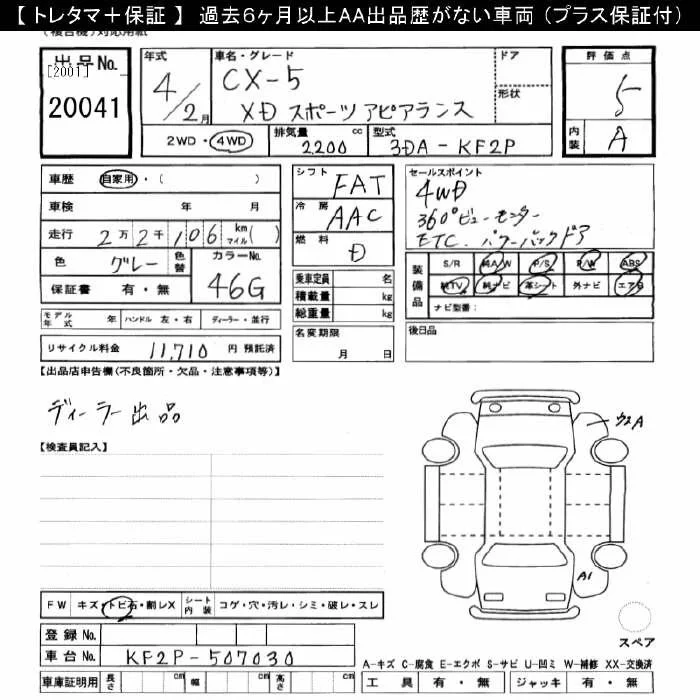 【トレタマ＋保証】 過去6ヶ月以上AA出品歴がない車両（プラス保証付）
(複合機)対応用紙
出品No.
[2001]
20041
年式
4/2月
車名・グレード
CX-5
XD スポーツアピアランス
ドア
形状
2WD・4WD
排気量
2200 cc
型式
3DA-KF2P
評価点
5
内装
A
車歴 自家用・( )
車検 年 月
走行 2万2千106 km マイル( )
色 グレー 色替 カラーNo. 46G
保証書 有・無
シフト FAT
冷房 AAC
燃料 D
乗車定員 名
積載量 kg
総重量 kg
セールスポイント
4WD
360°ビューモニター
ETC. パワーバックドア
装備品
S/R 純A/W P/S P/W ABS
純TV 純ナビ 革シート 外ナビ エアB
ナビ型番:
モデル年式 年 ハンドル 左・右 ディーラー・並行
名変期限 月 日
後日品
リサイクル料金 11,710 円 預託済
【出品店申告欄(不良箇所・欠品・注意事項等)】
ディーラー出品
【検査員記入】
ウスA
A1
FW キズ・トビ石・割レX シート内装 コゲ・穴・汚レ・シミ・破レ・スレ
スペア
登録No.
車台No. KF2P-507030
A-キズ C-腐食 E-エクボ S-サビ U-凹ミ W-補修 XX-交換済
車庫証明用 長さ cm 幅 cm 高さ cm
工具 有・無 ジャッキ 有・無